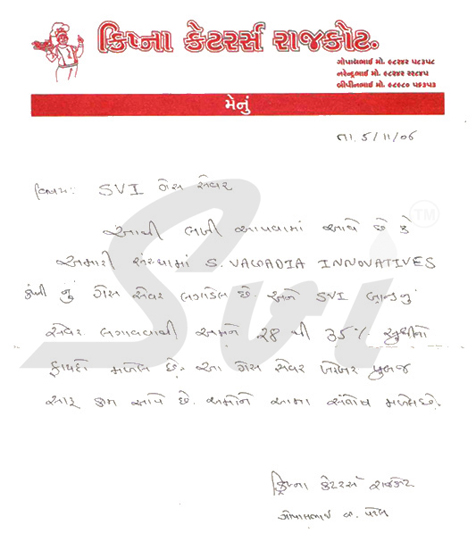 ક્રિષ્ના કેટરર્સ રાજકોટ.
ગોપાલભાઈ મો. ૯૮૨૪૨ ૫૮૩૫૮
નરેન્દ્રભાઈ મો. ૯૮૨૪૨ ૨૨૮૪૫
બીપીનભાઈ મો. ૯૮૯૮૦ ૫૬૩૫૩
મેનું
તા. 5/11/06
વિષય: SVI ગેસ સેવર
આથી લખી આપવામાં આવે છે કે
અમારી સંસ્થામાં S. VAGADIA INNOVATIVES
કંપની નું ગેસ સેવર લગાડેલ છે. અને SVI બ્રાન્ડનું
સેવર લગાવવાથી અમને 28 થી 35% સુધીનો
ફાયદો મળેલ છે. આ ગેસ સેવર ખરેખર ખુબજ
સારૂ કામ આપે છે. અમોને આમા સંતોષ મળેલ છે.
ક્રિષ્ના કેટરર્સ રાજકોટ
ગોપાલભાઈ વ.
Svi
TM